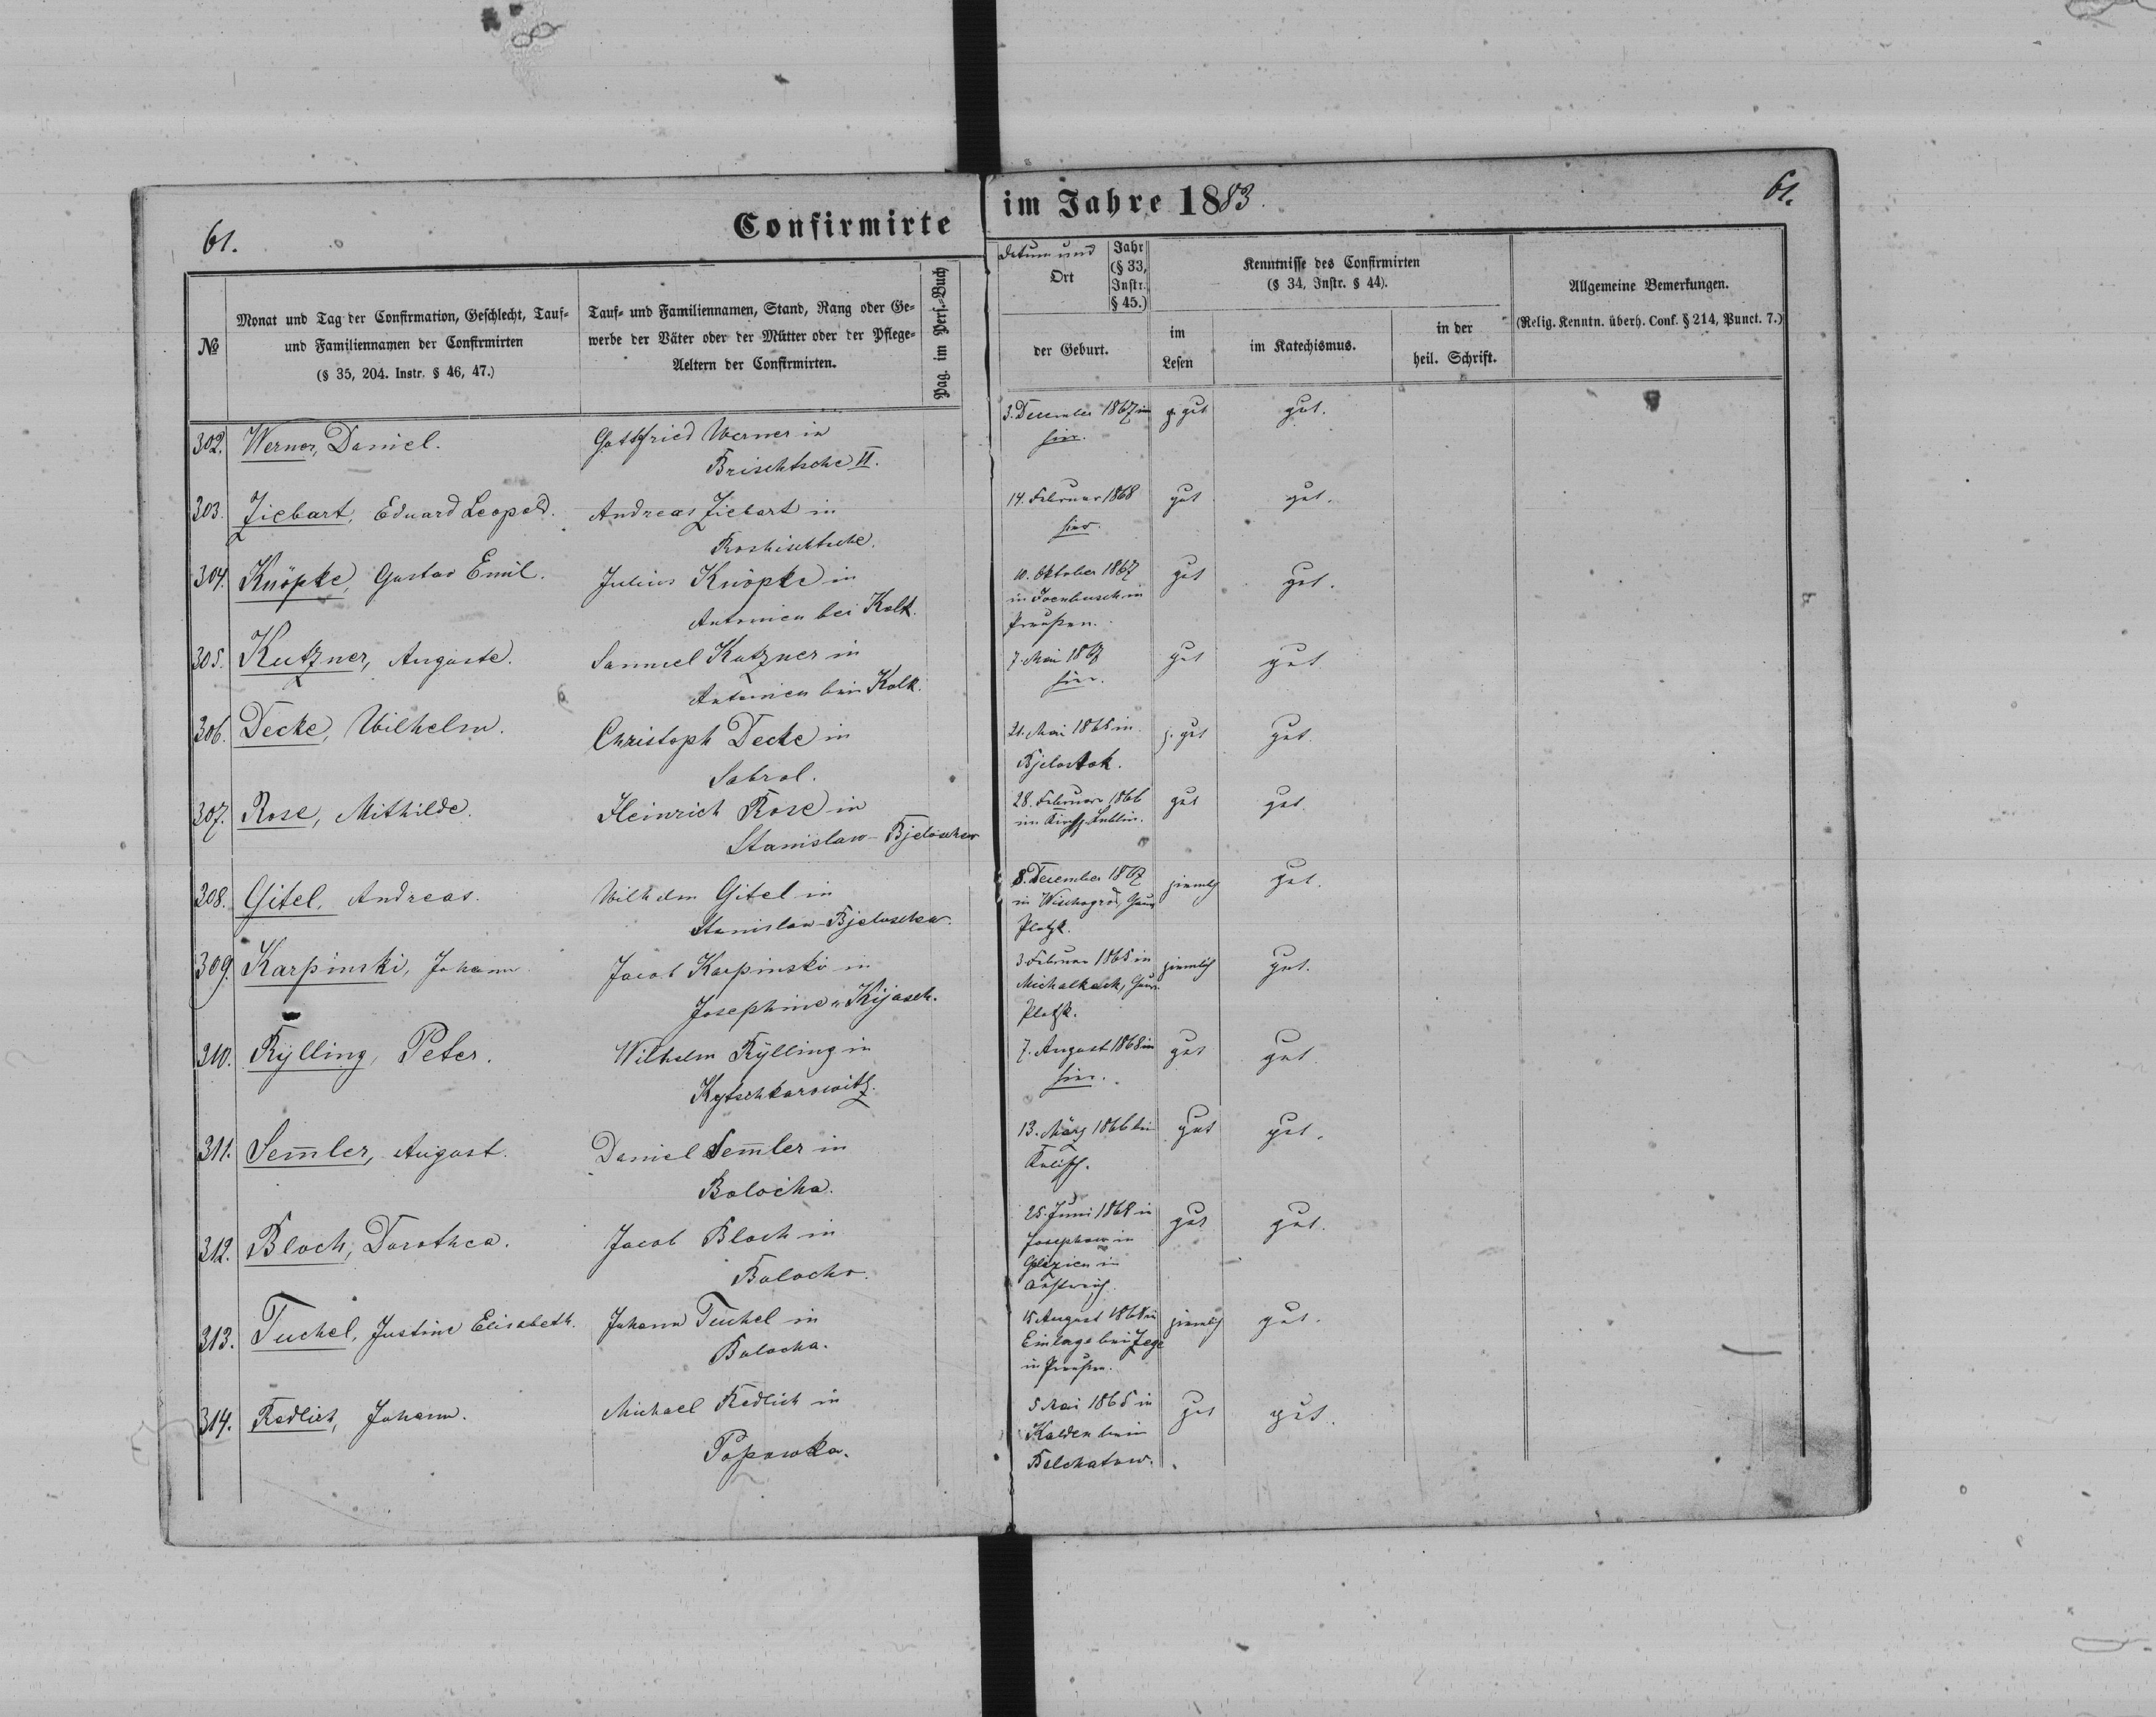 61.
Confirmirte
im Jahre 1883.
61.
№
Monat und Tag der Confirmation, Geschlecht, Tauf=
und Familiennamen der Confirmirten
(§ 35, 204. Instr. § 46, 47.)
Tauf= und Familiennamen, Stand, Rang oder Ge=
werbe der Väter oder der Mütter oder der Pflege=
Aeltern der Confirmirten.
Pag. im Pers.=Buch
Datum und
Ort
Jahr
(§ 33,
Instr.
§ 45.)
der Geburt.
Kenntnisse des Confirmirten
(§ 34, Instr. § 44).
im
Lesen
im Katechismus.
in der
heil. Schrift.
Allgemeine Bemerkungen.
(Relig. Kenntn. überh. Conf. § 214, Punct. 7.)
302. Werner, Daniel.
Gottfried Werner in
Brischtsche II.
3. December 1867 in
hier.
gut
gut.
303. Ziebart, Eduard Leopold.
Andreas Ziebart in
Roshischtsche.
14. Februar 1868
hier.
gut
gut.
304. Knöpke, Gustav Emil.
Julius Knöpke in
Antonien bei Kolk.
10. Oktober 1867
in
Preußen.
gut
gut.
305. Kutzner, Auguste.
Samuel Kutzner in
Antonien bei Kolk.
7. Mai 1867
hier.
gut
gut
306. Decke, Wilhelm.
Christoph Decke in
Sabrol.
21. Mai 1865 in
Bjelostok.
z. gut
gut.
307. Rose, Mithilde.
Heinrich Rose in
Stanislaw-Bjeloschew
28. Februar 1866
im Lublin.
gut
gut.
308. Gitel, Andreas.
Wilhelm Gitel in
Stanislaw-Bjeloschew.
8. December 1867
in Wischogrod, Gouv
Plotzk.
ziemlich
gut.
309. Karpinski, Johann
Jacob Karpinski in
Josephine u. Kijasch.
3. Februar 1865 in
Michalkach, Gouv.
Plotzk.
ziemlich
gut.
310. Rÿlling, Peter.
Wilhelm Rÿlling in
Kytschkarowitz.
7. August 1868 in
hier.
gut
gut.
311. Sem̅ler, August.
Daniel Sem̅ler in
Balocha.
13. März 1866 bei
Kalisch.
gut
gut.
312. Bloch, Dorothea.
Jacob Bloch in
Balocha.
25. Juni 1868 in
Josephow in
Galizien in
Östreich.
gut
gut.
313. Tuchel, Justine Elisabeth.
Johann Tuchel in
Balocha.
15 August 1868 in
Einlage bei
in Preußen.
ziemlich
gut.
314. Redlich, Johann.
Michael Redlich in
Popowka.
5 Mai 1865 in
Kalden bei
Belchatow.
gut
gut.